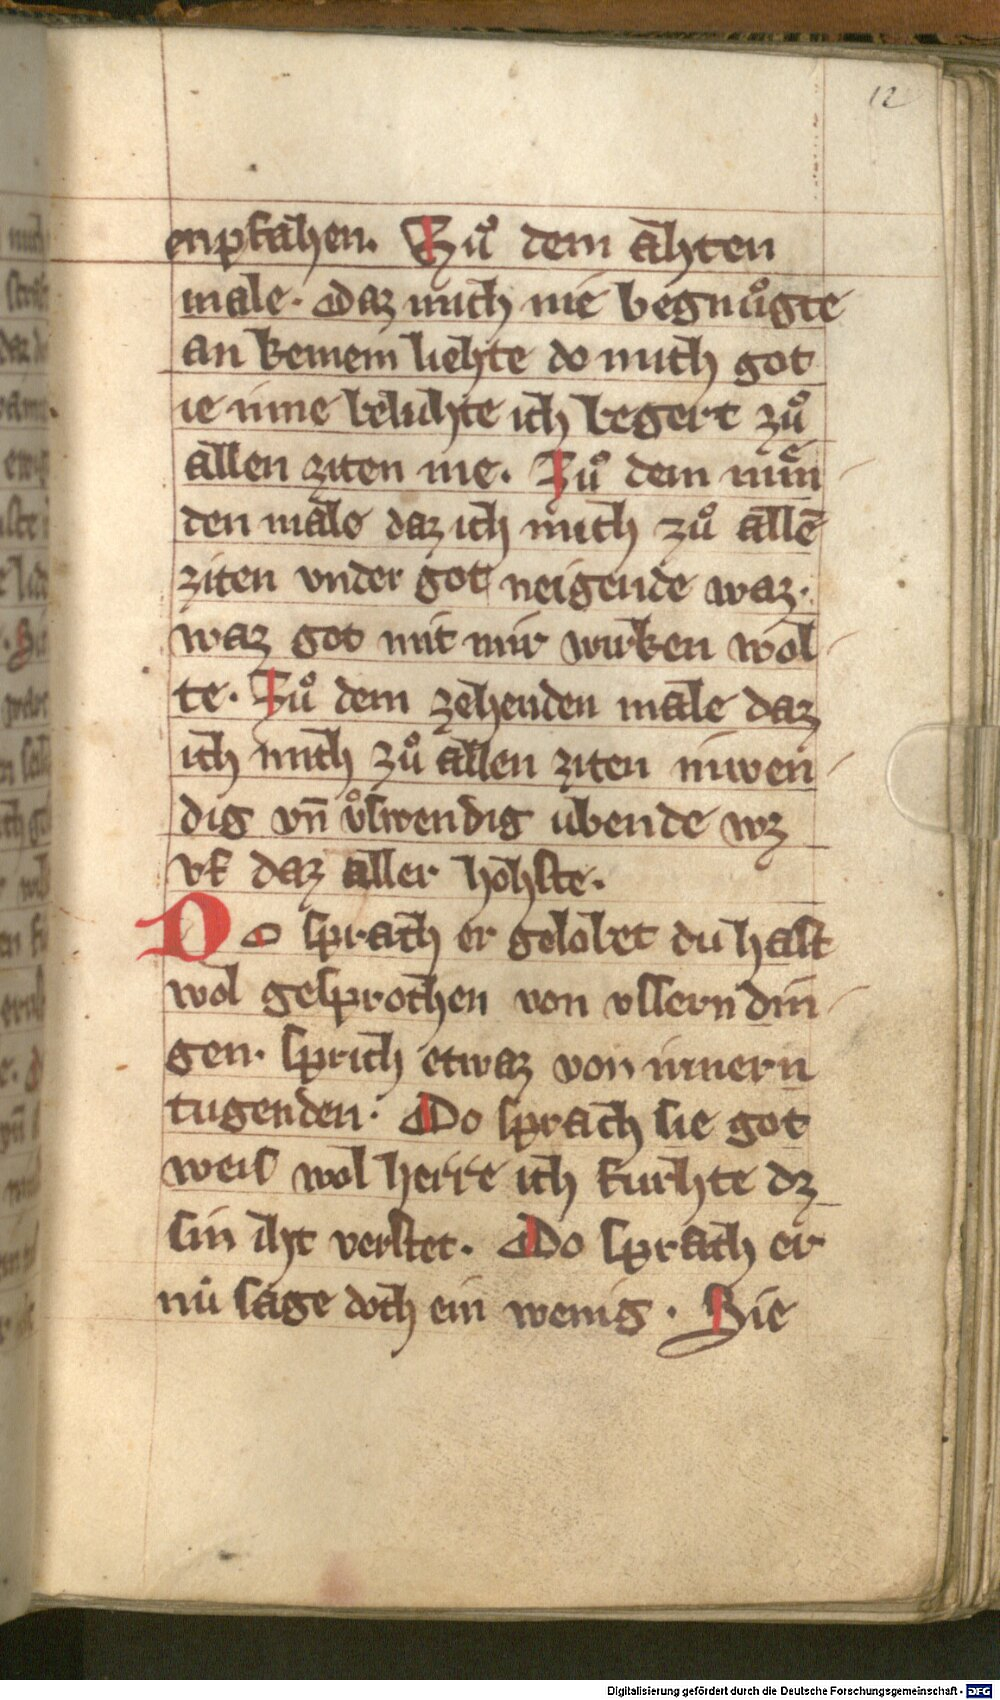 12
enpfahen. Zuͦ dem ahten
male. Daz mich nie begnuͦgte
an keinem liehte do mich got
ie inne beluhte ich begert zuͦ
allen ziten me. Zuͦ dem nuͤn
den male daz ich mich zuͦ allē
ziten vnder got neigende waz.
waz got mit mir wirken wol
te. Zuͦ dem zehenden male daz
ich mich zuͦ allen ziten inwen
dig vn̄ uͦswendig ubende wz
vf daz aller hohste.
Do sprach er gelobet du hast
wol gesprochen von vssern din
gen. sprich etwaz von innern
tugenden. Do sprach sie got
weis wol herre ich furhte dz
sin iht verstet. Do sprach er
nuͦ sage doch ein wenig. Sie
Digitalisierung gefördert durch die Deutsche Forschungsgemeinschaft - DFG